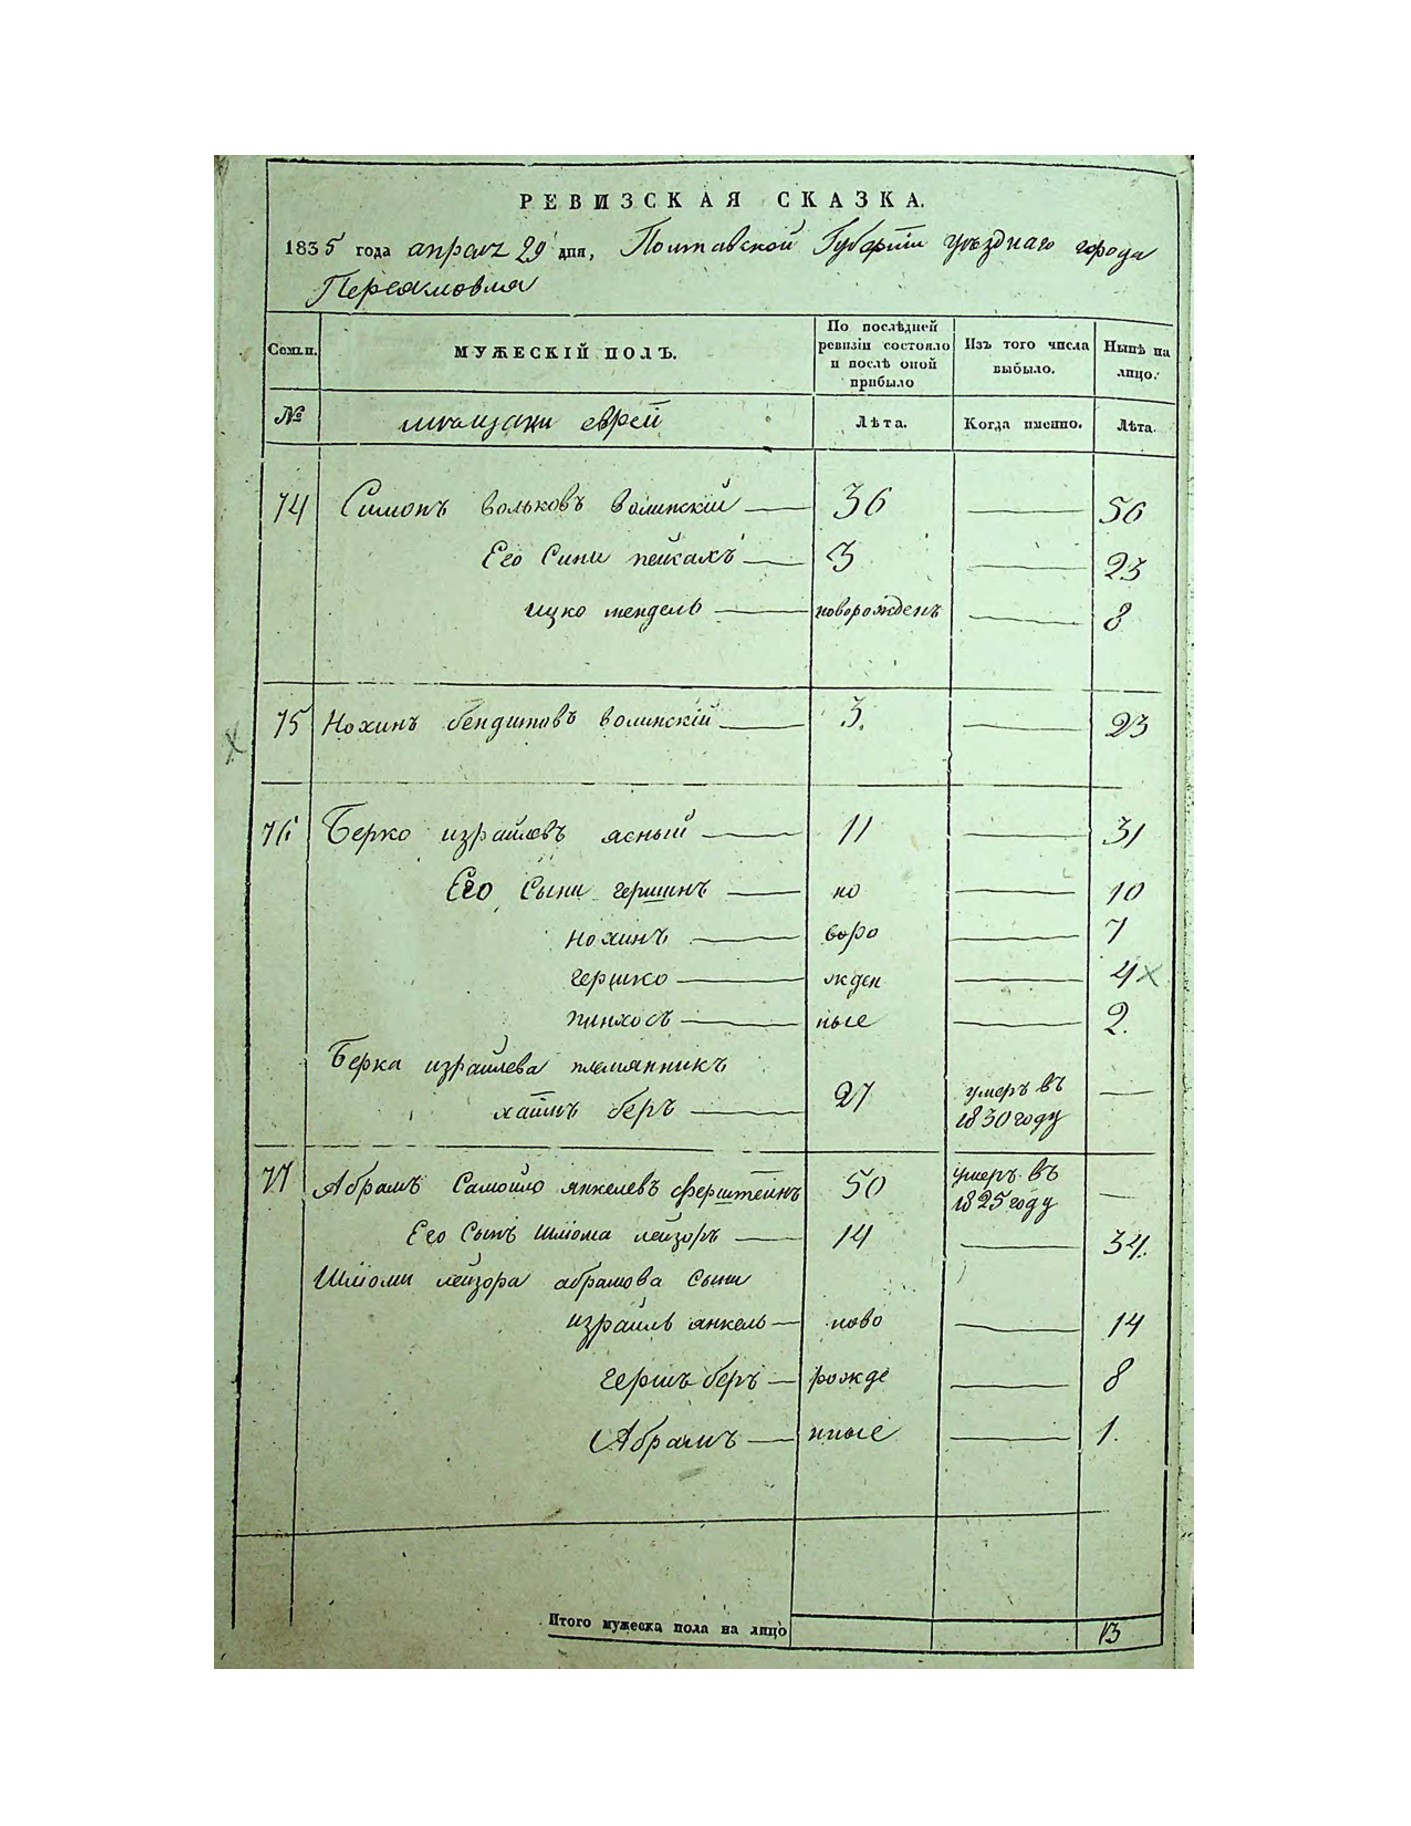 РЕВИЗСКАЯ СКАЗКА.
1835 года апреля 29 дня, Полтавской Губернїи уѣзднаго города
Переяславля
Семьи. МУЖЕСКІЙ ПОЛЪ. По послѣдней ревизіи состояло и послѣ оной прибыло Изъ того числа выбыло. Нынѣ на лицо.
№ мѣщани еврей Лѣта. Когда именно. Лѣта.
74 Симонъ вольковъ волинскій 36 56
Его Сини пейсахъ 3 23
ицко мендель новорожденъ 8
75 Нохинъ бендитовъ волинскій 3. 23
76 Берко израилевъ ясный 11 31
Его Сыни гершинъ но 10
нохинъ воро 7
гершко жден 4 х
пинхосъ ные 2.
Берка израилева племянникъ
хаимъ беръ 27 умеръ въ 1830 году
77 Абрамъ Самойло янкелевъ ферштеинъ 50 умеръ въ 1825 году
Его Сынъ шлиома лейзоръ 14 34.
Шлиоми лейзора абрамова сыни
израиль янкель ново 14
гершъ беръ рожде 8
Абрамъ нные 1.
Итого мужеска пола на лицо 13